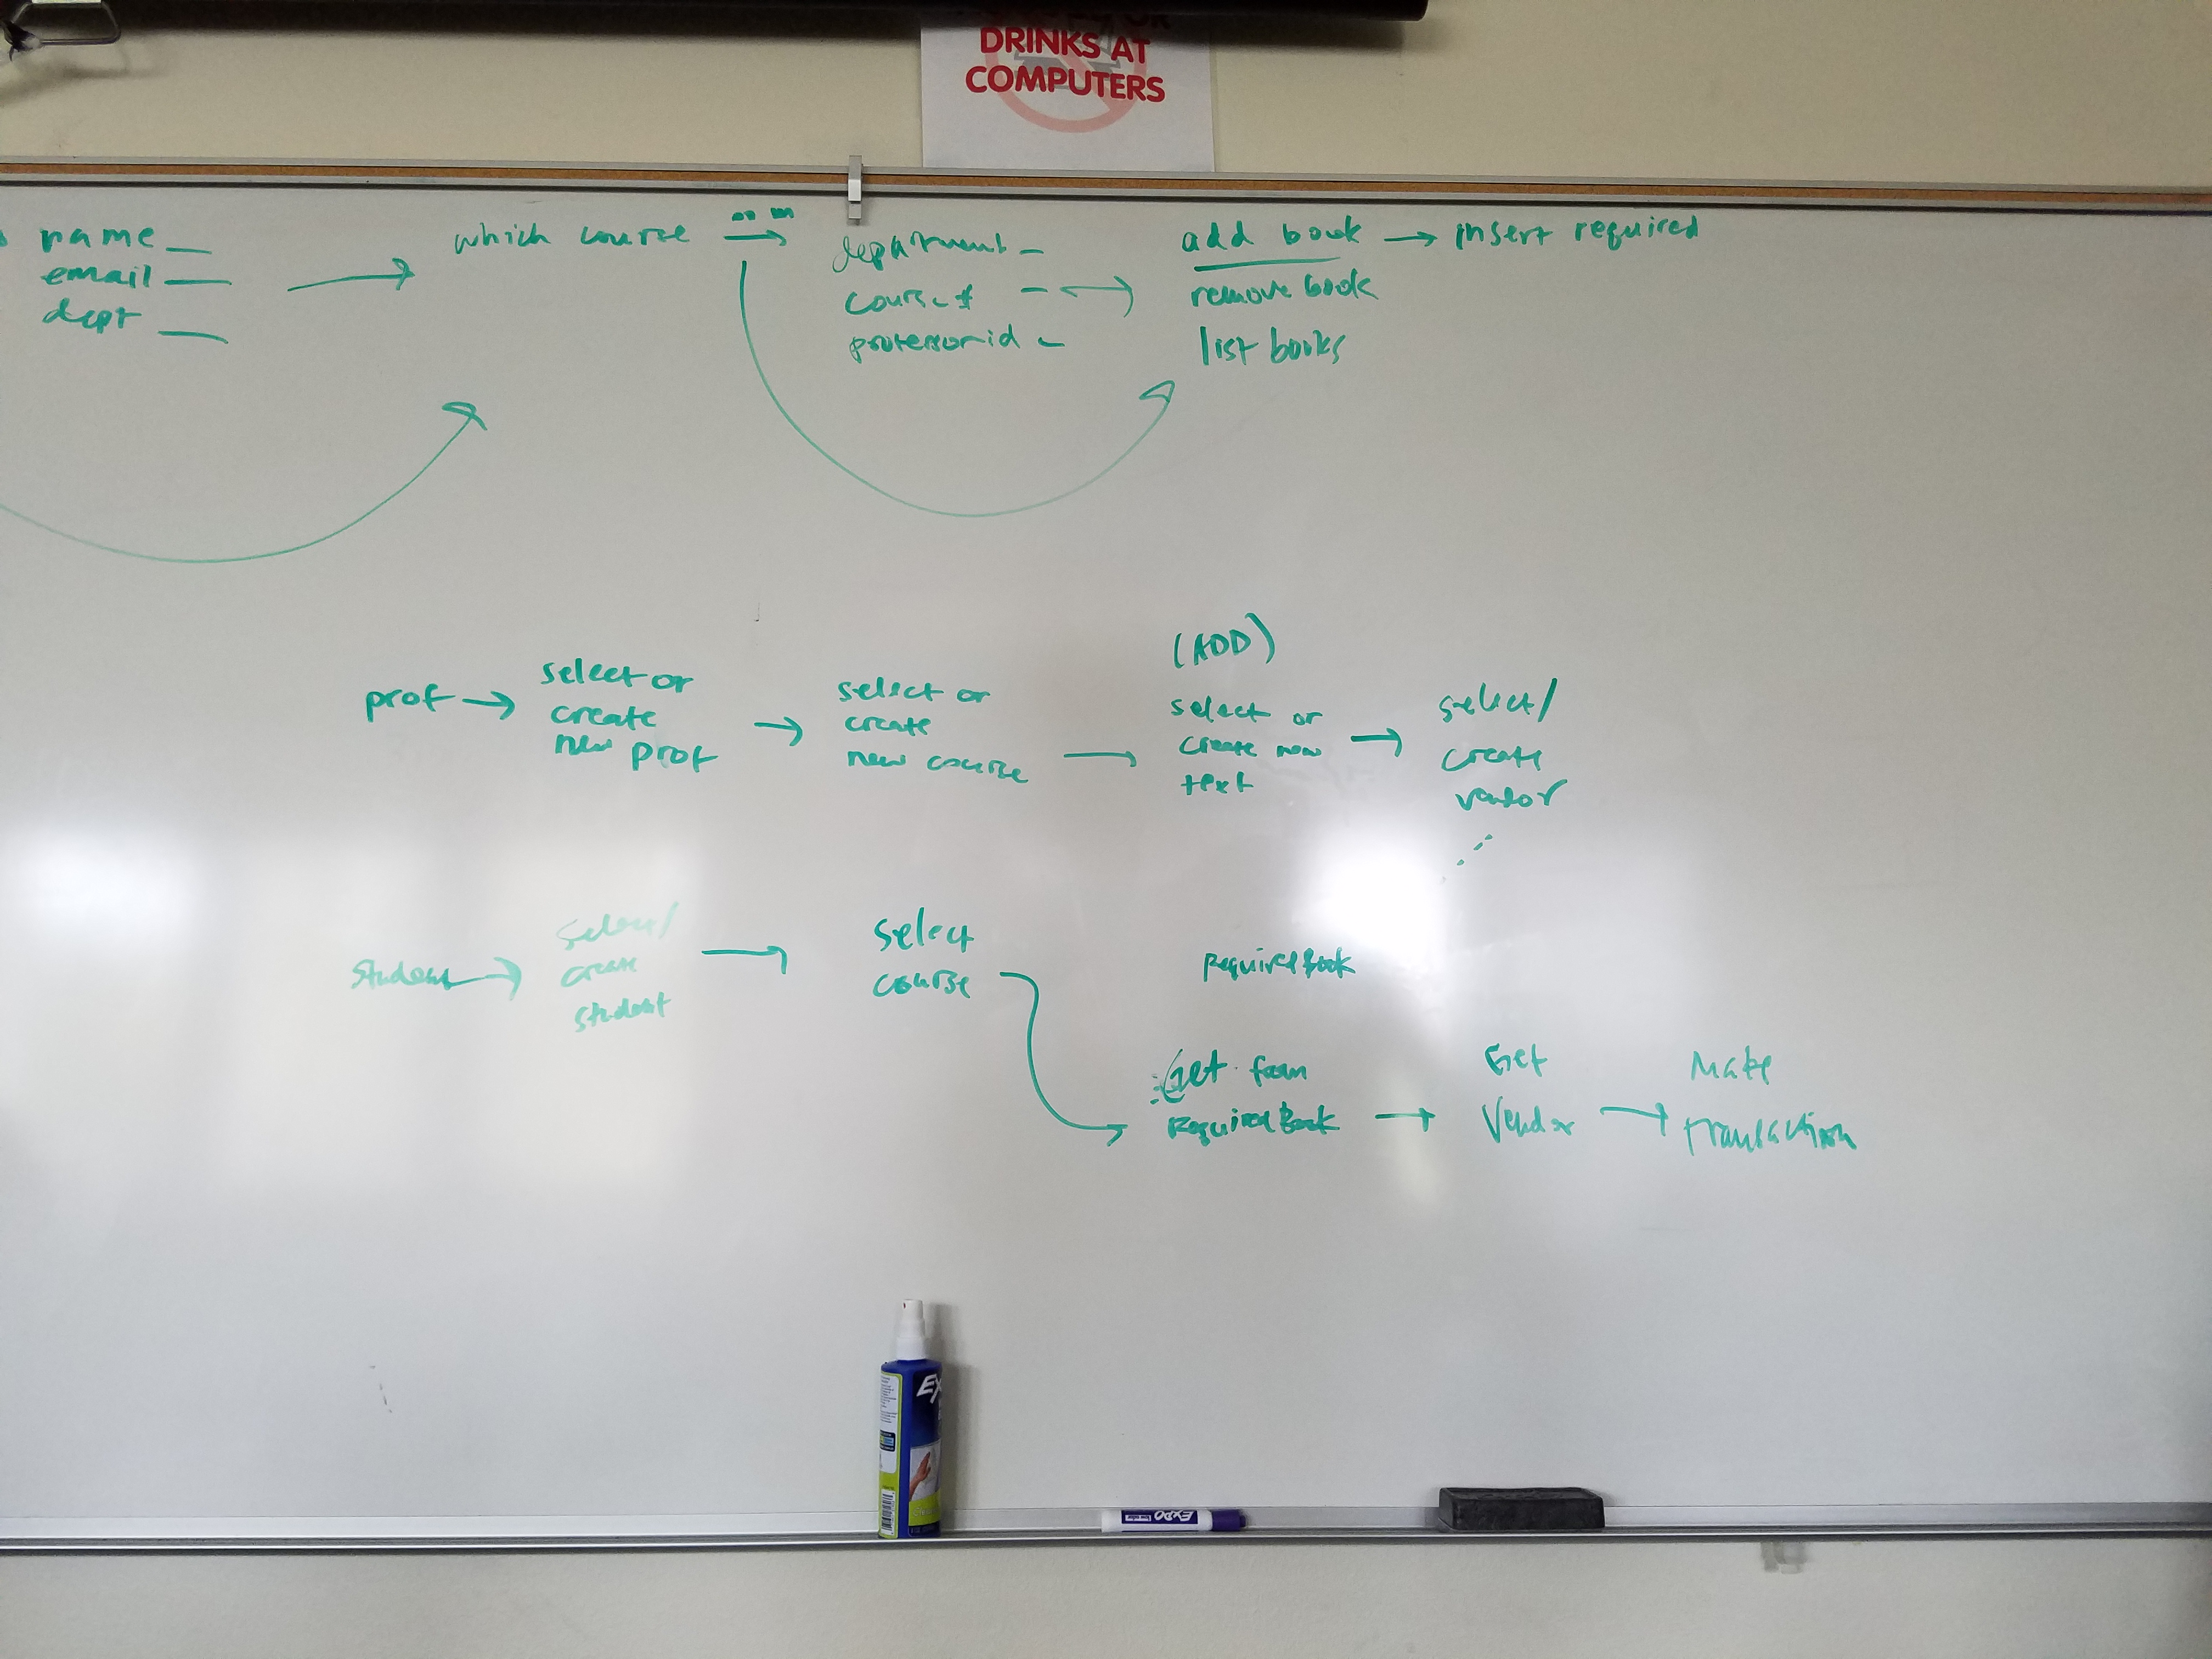 DRINKS AT
COMPUTERS
name
email
dept
which course
department
course #
professor id
add book → insert required
remove book
list books
prof →
select or
create
new prof
→
select or
create
new course
(ADD)
select or
create new
text
→
select/
create
vendor
student
select/
create
student
select
course
Required Book
Get from
Required Book
→
Get
Vendor
→
Make
transaction
EXPO